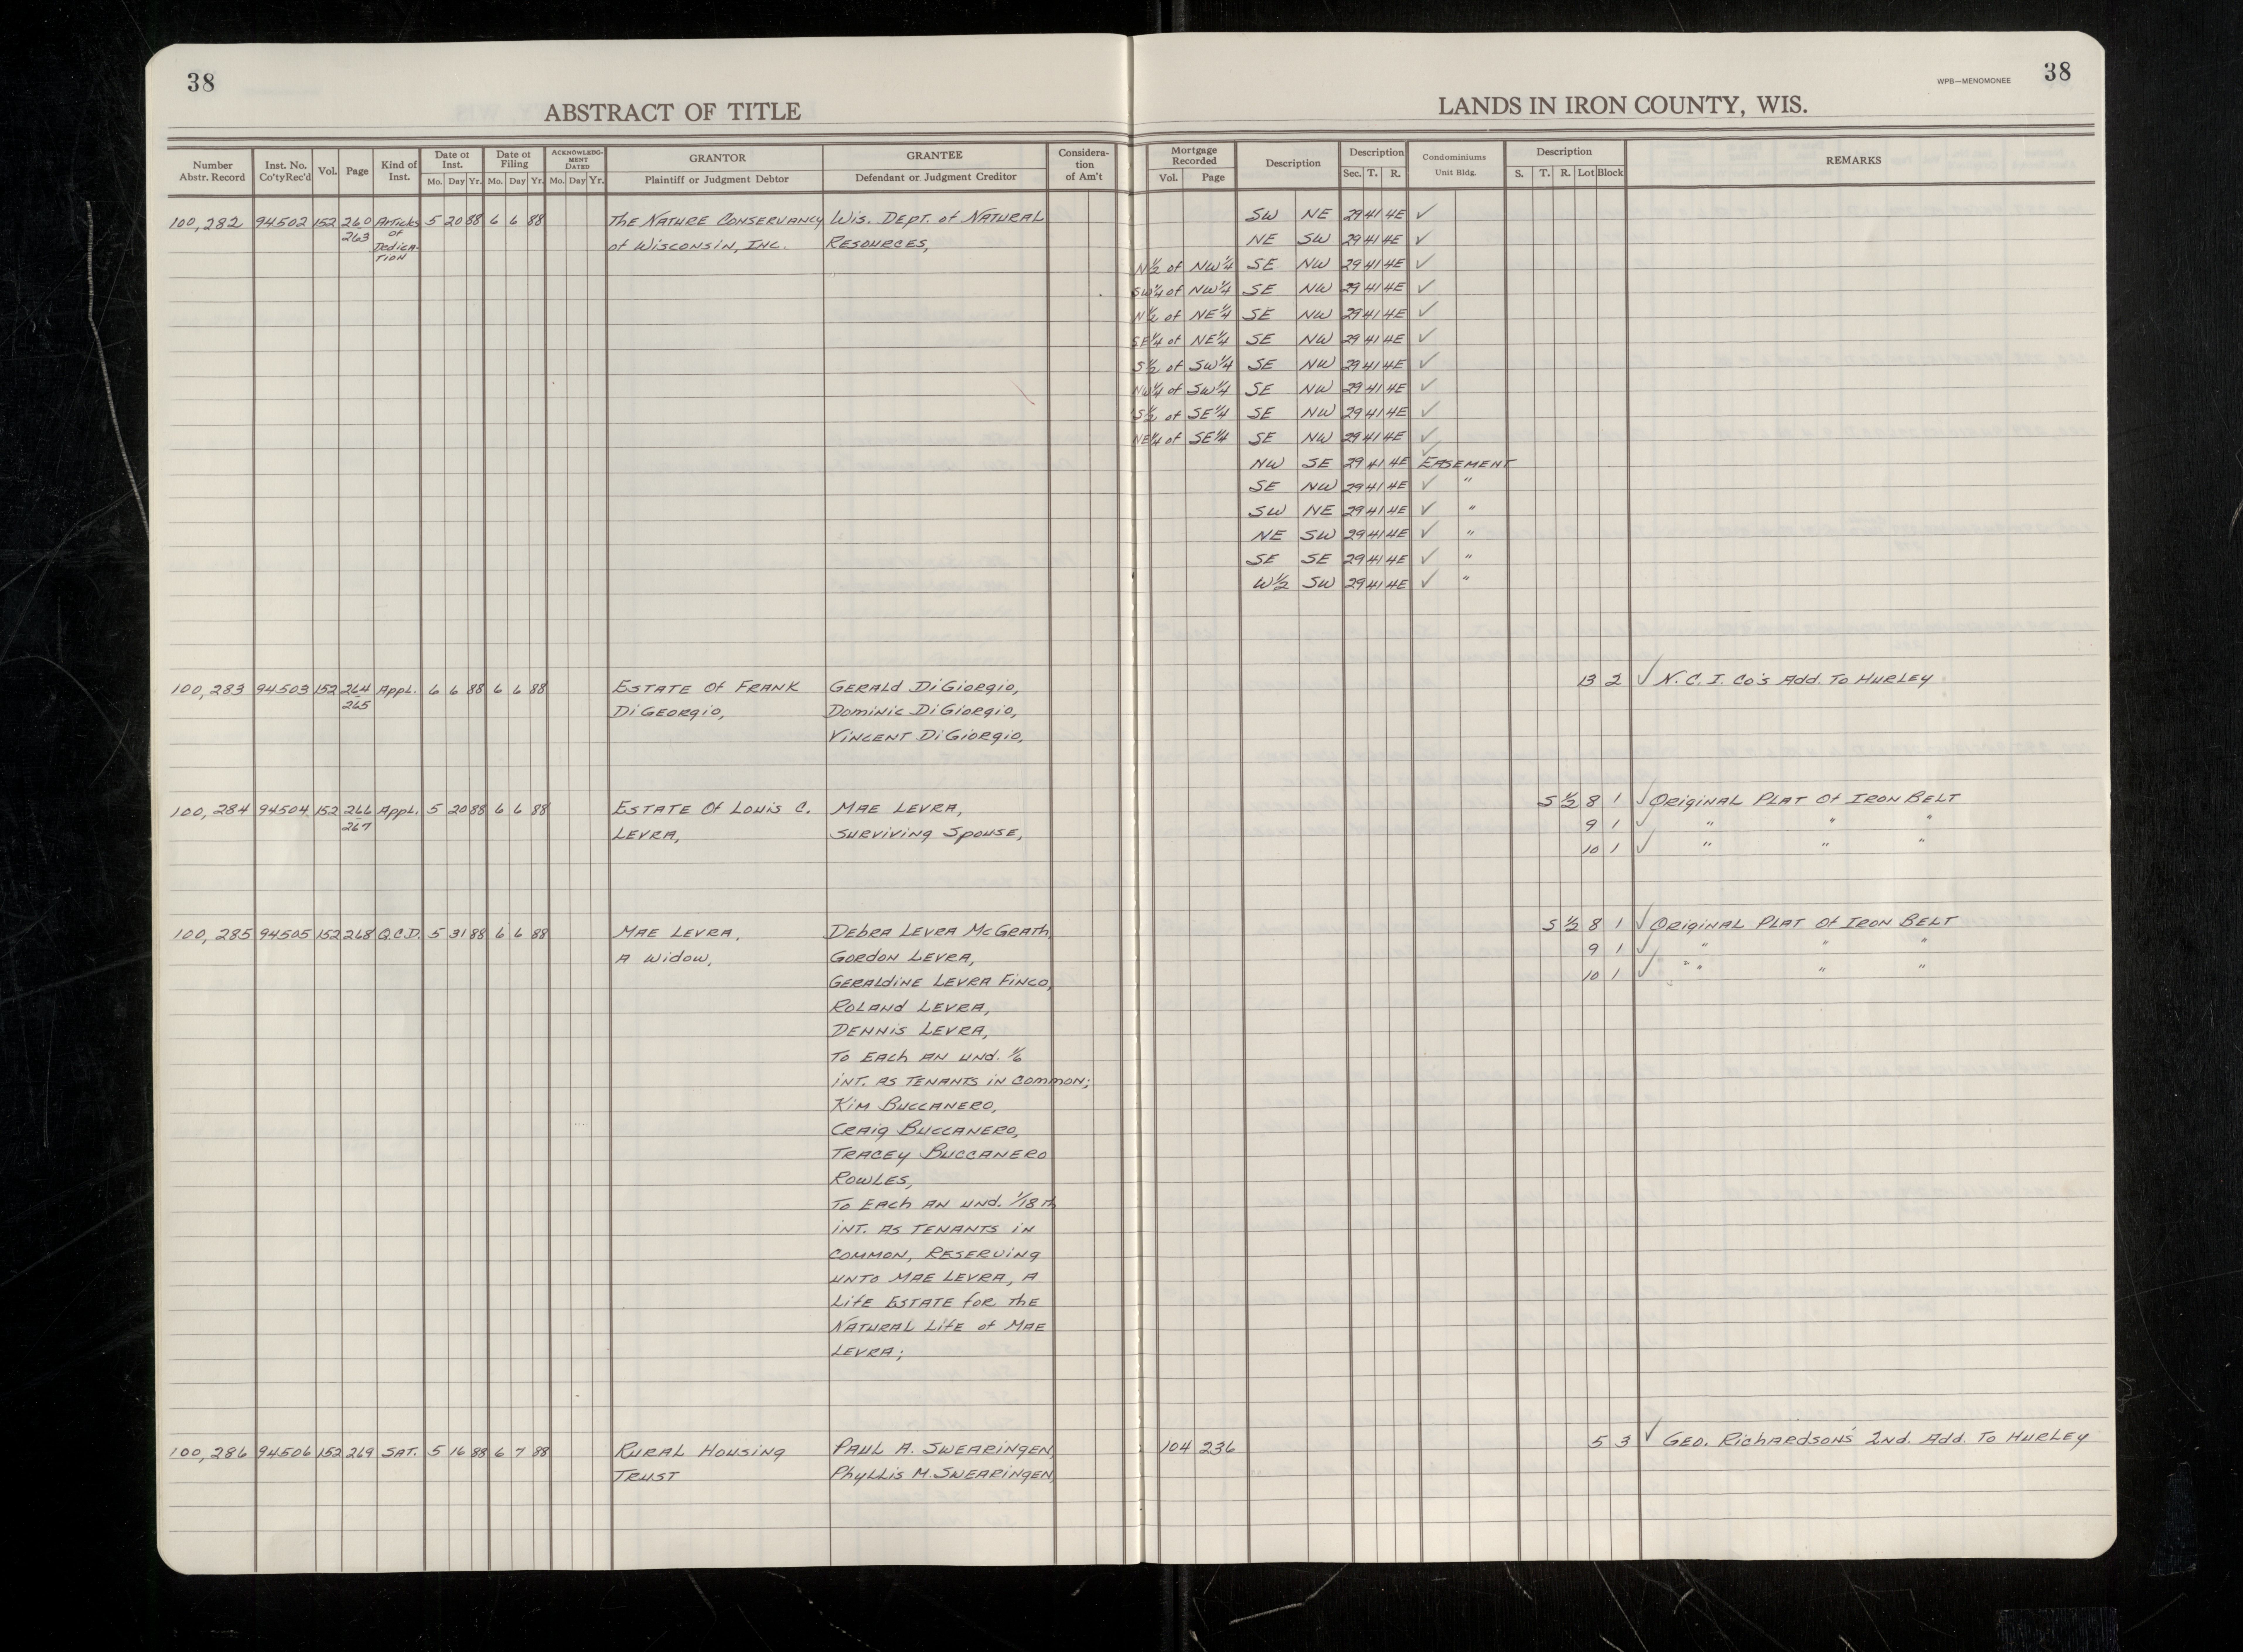 38
ABSTRACT OF TITLE
Number Abstr. Record Inst. No. Co'ty Rec'd Vol. Page Kind of Inst. Date of Inst. Mo. Day Yr. Date of Filing Mo. Day Yr. ACKNOWLEDGMENT DATED Mo. Day Yr. GRANTOR Plaintiff or Judgment Debtor GRANTEE Defendant or Judgment Creditor Consideration of Am't
100,282 94502 152 260 Articles 5 20 88 6 6 88 The Nature Conservancy Wis. Dept. of Natural
263 of of Wisconsin, Inc. Resources,
Dedica-
tion
100,283 94503 152 264 Appl. 6 6 88 6 6 88 Estate of Frank Gerald DiGiorgio,
265 DiGeorgio, Dominic DiGiorgio,
Vincent DiGiorgio,
100,284 94504 152 266 Appl. 5 20 88 6 6 88 Estate of Louis C. Mae Levra,
267 Levra, Surviving Spouse,
100,285 94505 152 268 Q.C.D. 5 31 88 6 6 88 Mae Levra, Debra Levra McGrath,
A Widow, Gordon Levra,
Geraldine Levra Finco,
Roland Levra,
Dennis Levra,
To Each an und. 1/6
int. as tenants in common;
Kim Buccanero,
Craig Buccanero,
Tracey Buccanero
Rowles,
To Each an und. 1/18th
int. as tenants in
common, reserving
unto Mae Levra, a
Life Estate for the
Natural Life of Mae
Levra;
100,286 94506 152 269 Sat. 5 16 88 6 7 88 Rural Housing Paul A. Swearingen,
Trust Phyllis M. Swearingen,
WPB—MENOMONEE 38
LANDS IN IRON COUNTY, WIS.
Mortgage Recorded Vol. Page Description Description Sec. T. R. Condominiums Unit Bldg. Description S. T. R. Lot Block REMARKS
SW NE 29 41 4E ✓
NE SW 29 41 4E ✓
N½ of NW¼ SE NW 29 41 4E ✓
SW¼ of NW¼ SE NW 29 41 4E ✓
N½ of NE¼ SE NW 29 41 4E ✓
SE¼ of NE¼ SE NW 29 41 4E ✓
S½ of SW¼ SE NW 29 41 4E ✓
NW¼ of SW¼ SE NW 29 41 4E ✓
S½ of SE¼ SE NW 29 41 4E ✓
NE¼ of SE¼ SE NW 29 41 4E ✓
NW SE 29 41 4E ✓ Easement
SE NW 29 41 4E ✓ "
SW NE 29 41 4E ✓ "
NE SW 29 41 4E ✓ "
SE SE 29 41 4E ✓ "
W½ SW 29 41 4E ✓ "
13 2 ✓ N. C. I. Co's Add. To Hurley
S ½ 8 1 ✓ Original Plat of Iron Belt
9 1 ✓ " " "
10 1 ✓ " " "
S ½ 8 1 ✓ Original Plat of Iron Belt
9 1 ✓ " " "
10 1 ✓ " " "
104 236 5 3 ✓ Geo. Richardson's 2nd. Add. To Hurley